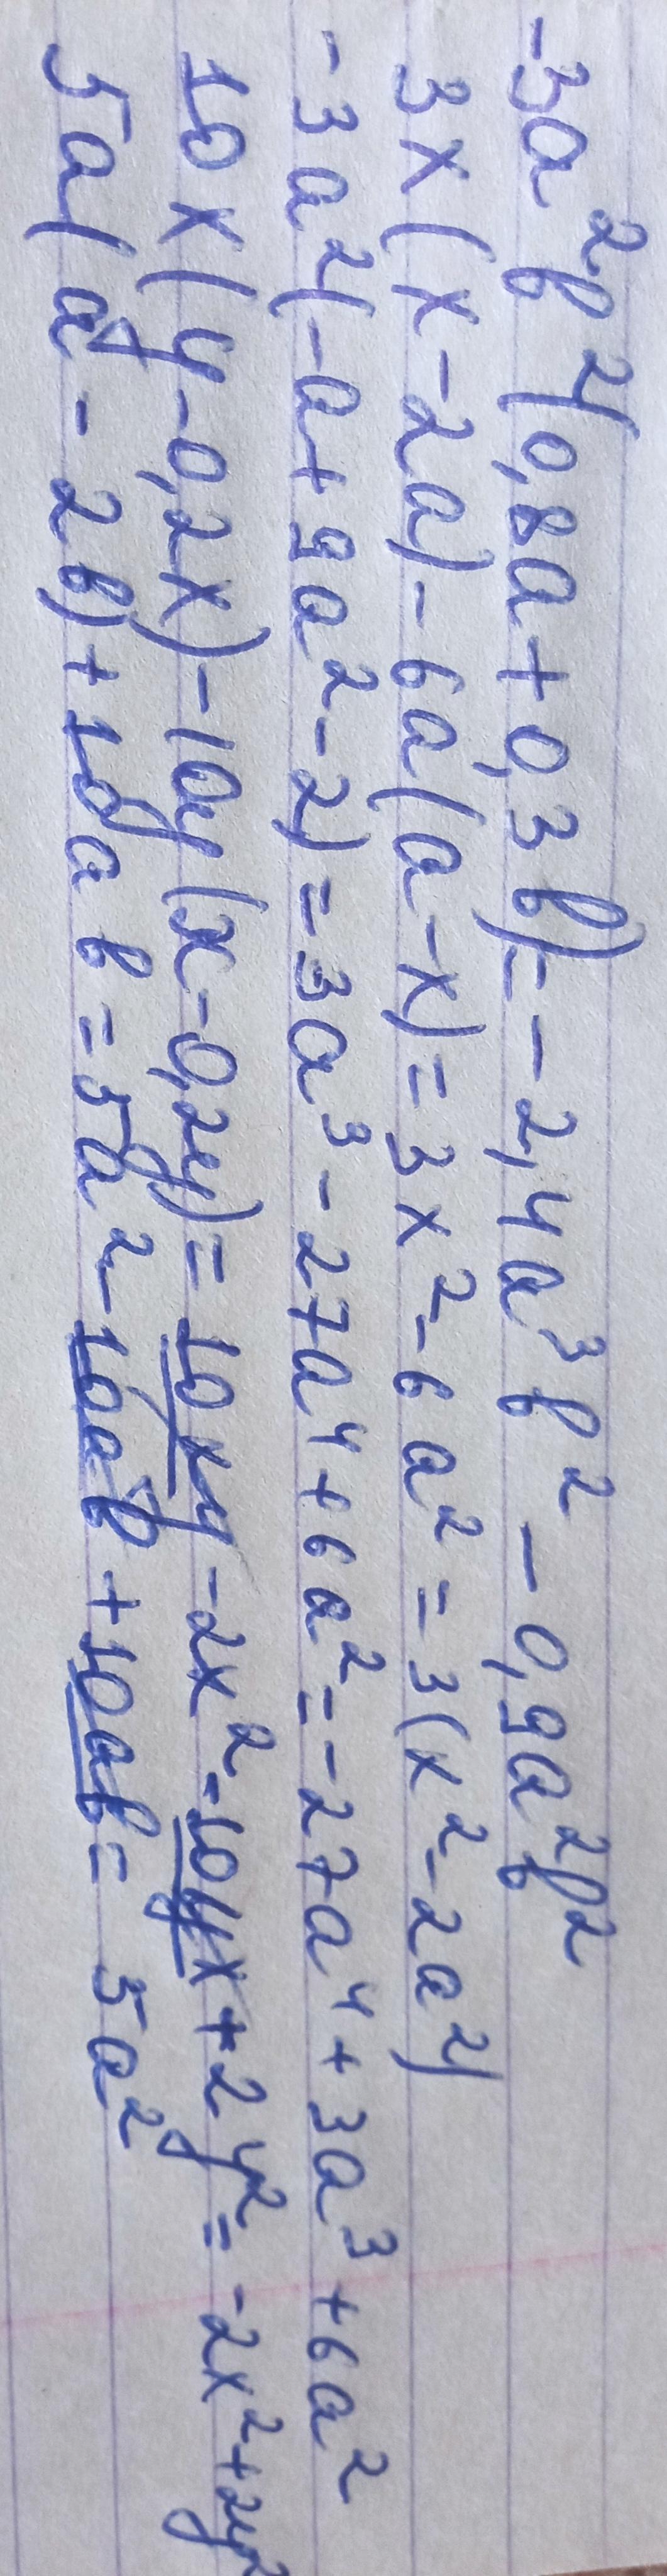 -3a²b²(0,8a+0,3b)=-2,4a³b²-0,9a²b²
3x(x-2a)-6a(a-x)=3x²-6a²=3(x²-2a²)
-3a²(-a+9a²-2)=3a³-27a⁴+6a²=-27a⁴+3a³+6a²
10x(y-0,2x)-10y(x-0,2y)=10xy-2x²-10yx+2y²=-2x²+2y²
5a(a-2b)+10ab=5a²-10ab+10ab=5a²